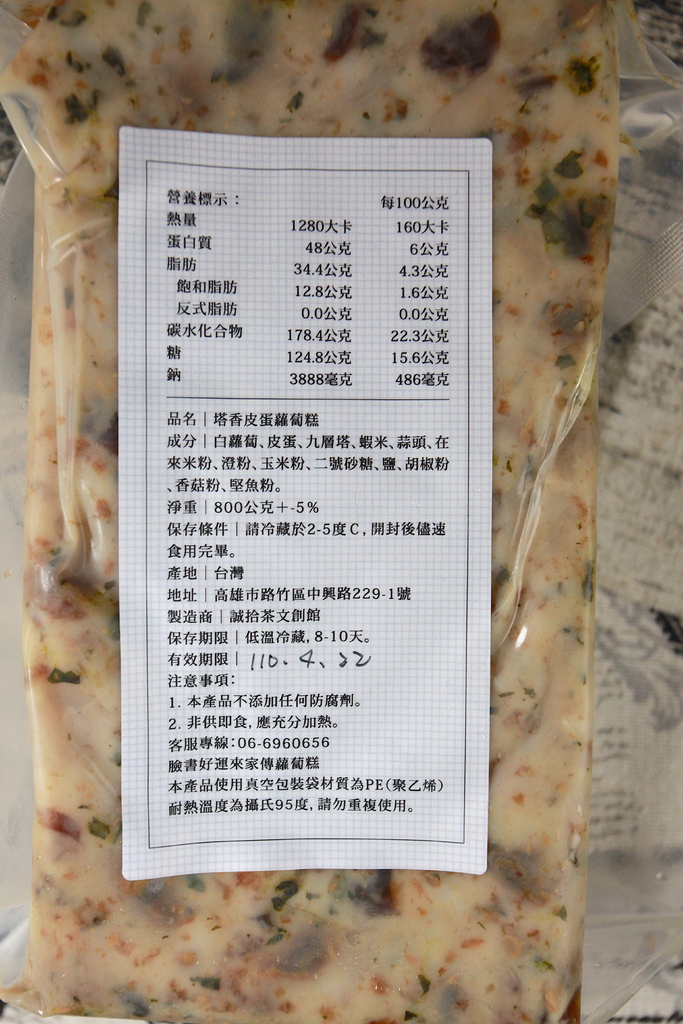 營養標示： 每100公克
熱量 1280大卡 160大卡
蛋白質 48公克 6公克
脂肪 34.4公克 4.3公克
飽和脂肪 12.8公克 1.6公克
反式脂肪 0.0公克 0.0公克
碳水化合物 178.4公克 22.3公克
糖 124.8公克 15.6公克
鈉 3888毫克 486毫克
品名｜塔香皮蛋蘿蔔糕
成分｜白蘿蔔、皮蛋、九層塔、蝦米、蒜頭、在
來米粉、澄粉、玉米粉、二號砂糖、鹽、胡椒粉
、香菇粉、堅魚粉。
淨重｜800公克+-5%
保存條件｜請冷藏於2-5度C，開封後儘速
食用完畢。
產地｜台灣
地址｜高雄市路竹區中興路229-1號
製造商｜誠拾茶文創館
保存期限｜低溫冷藏，8-10天。
有效期限｜110.4.22
注意事項：
1. 本產品不添加任何防腐劑。
2. 非供即食，應充分加熱。
客服專線：06-6960656
臉書好運來家傳蘿蔔糕
本產品使用真空包裝袋材質為PE（聚乙烯）
耐熱溫度為攝氏95度，請勿重複使用。